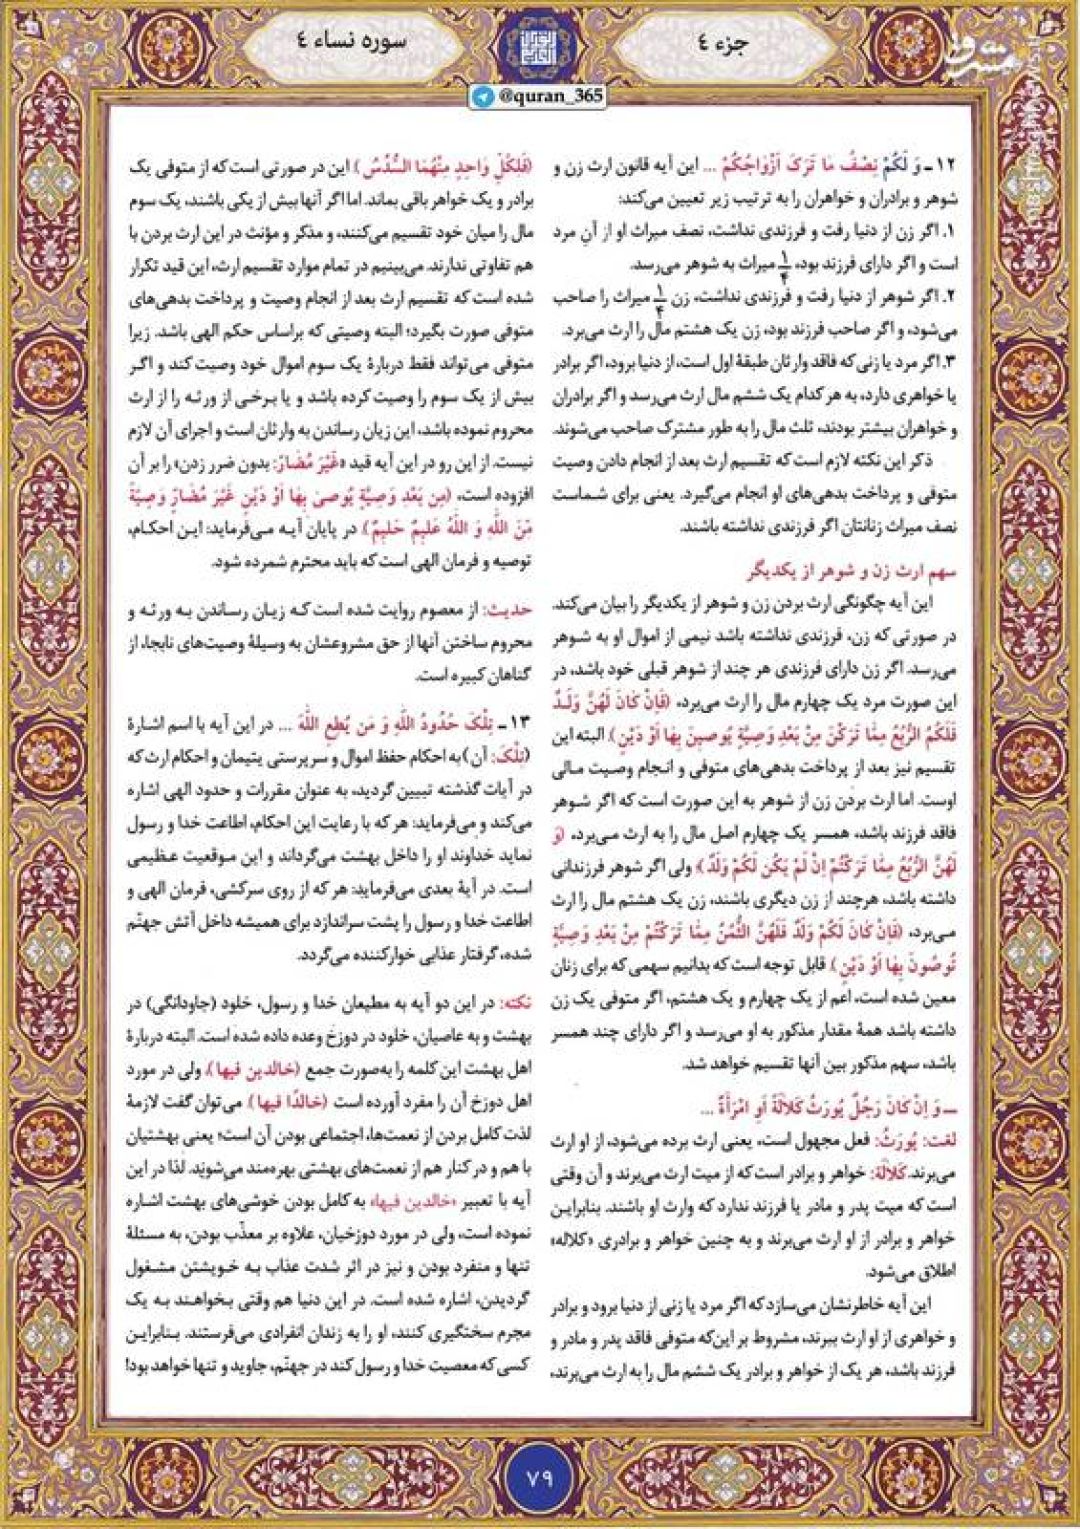 جزء ٤
سوره نساء ٤
@quran_365
۱۲ـ وَ لَکُمْ نِصْفُ مٰا تَرَکَ اَزْوٰاجُکُمْ ... این آیه قانون ارث زن و
شوهر و برادران و خواهران را به ترتیب زیر تعیین می‌کند:
۱. اگر زن از دنیا رفت و فرزندی نداشت، نصف میراث او از آنِ مرد
است و اگر دارای فرزند بود، ۱/۴ میراث به شوهر می‌رسد.
۲. اگر شوهر از دنیا رفت و فرزندی نداشت، زن ۱/۴ میراث را صاحب
می‌شود، و اگر صاحب فرزند بود، زن یک هشتم مال را ارث می‌برد.
۳. اگر مرد یا زنی که فاقد وارثان طبقهٔ اول است، از دنیا برود، اگر برادر
یا خواهری دارد، به هر کدام یک ششم مال ارث می‌رسد و اگر برادران
و خواهران بیشتر بودند، ثلث مال را به طور مشترک صاحب می‌شوند.
ذکر این نکته لازم است که تقسیم ارث بعد از انجام دادن وصیت
متوفی و پرداخت بدهی‌های او انجام می‌گیرد. یعنی برای شماست
نصف میراث زنانتان اگر فرزندی نداشته باشند.
سهم ارث زن و شوهر از یکدیگر
این آیه چگونگی ارث بردن زن و شوهر از یکدیگر را بیان می‌کند.
در صورتی که زن، فرزندی نداشته باشد نیمی از اموال او به شوهر
می‌رسد. اگر زن دارای فرزندی هر چند از شوهر قبلی خود باشد، در
این صورت مرد یک چهارم مال را ارث می‌برد، (فَاِنْ کٰانَ لَهُنَّ وَلَـدٌ
فَلَکُمُ الرُّبُعُ مِمّٰا تَرَکْنَ مِنْ بَعْدِ وَصِیَّةٍ یُوصینَ بِهٰا اَوْ دَیْنٍ). البته این
تقسیم نیز بعد از پرداخت بدهی‌های متوفی و انجام وصیت مالی
اوست. اما ارث بردن زن از شوهر به این صورت است که اگر شوهر
فاقد فرزند باشد، همسر یک چهارم اصل مال را به ارث می‌برد، (وَ
لَهُنَّ الرُّبُعُ مِمّٰا تَرَکْتُمْ اِنْ لَمْ یَکُنْ لَکُمْ وَلَدٌ)؛ ولی اگر شوهر فرزندانی
داشته باشد، هرچند از زن دیگری باشند، زن یک هشتم مال را ارث
می‌برد، (فَاِنْ کٰانَ لَکُمْ وَلَدٌ فَلَهُنَّ الثُّمُنُ مِمّٰا تَرَکْتُمْ مِنْ بَعْدِ وَصِیَّةٍ
تُوصُونَ بِهٰا اَوْ دَیْنٍ). قابل توجه است که بدانیم سهمی که برای زنان
معین شده است، اعم از یک چهارم و یک هشتم، اگر متوفی یک زن
داشته باشد همهٔ مقدار مذکور به او می‌رسد و اگر دارای چند همسر
باشد، سهم مذکور بین آنها تقسیم خواهد شد.
ـ وَ اِنْ کٰانَ رَجُلٌ یُورَثُ کَلٰالَةً اَوِ امْرَأَةٌ ...
لغت: یُورَثُ: فعل مجهول است، یعنی ارث برده می‌شود، از او ارث
می‌برند. کَلٰالَة: خواهر و برادر است که از میت ارث می‌برند و آن وقتی
است که میت پدر و مادر یا فرزند ندارد که وارث او باشند. بنابراین
خواهر و برادر از او ارث می‌برند و به چنین خواهر و برادری «کلاله»
اطلاق می‌شود.
این آیه خاطرنشان می‌سازد که اگر مرد یا زنی از دنیا برود و برادر
و خواهری از او ارث ببرند، مشروط بر این‌که متوفی فاقد پدر و مادر و
فرزند باشد، هر یک از خواهر و برادر یک ششم مال را به ارث می‌برند،
(فَلِکُلِّ وٰاحِدٍ مِنْهُمَا السُّدُسُ). این در صورتی است که از متوفی یک
برادر و یک خواهر باقی بماند. اما اگر آنها بیش از یکی باشند، یک سوم
مال را میان خود تقسیم می‌کنند، و مذکر و مؤنث در این ارث بردن با
هم تفاوتی ندارند. می‌بینیم در تمام موارد تقسیم ارث، این قید تکرار
شده است که تقسیم ارث بعد از انجام وصیت و پرداخت بدهی‌های
متوفی صورت بگیرد؛ البته وصیتی که براساس حکم الهی باشد. زیرا
متوفی می‌تواند فقط دربارهٔ یک سوم اموال خود وصیت کند و اگر
بیش از یک سوم را وصیت کرده باشد و یا برخی از ورثه را از ارث
محروم نموده باشد، این زیان رساندن به وارثان است و اجرای آن لازم
نیست. از این رو در این آیه قید «غَیْرَ مُضٰارّ: بدون ضرر زدن» را بر آن
افزوده است، (مِن بَعْدِ وَصِیَّةٍ یُوصیٰ بِهٰا اَوْ دَیْنٍ غَیْرَ مُضٰارٍّ وَصِیَّةً
مِنَ اللّٰهِ وَ اللّٰهُ عَلیمٌ حَلیمٌ). در پایان آیه می‌فرماید: این احکام،
توصیه و فرمان الهی است که باید محترم شمرده شود.
حدیث: از معصوم روایت شده است که زیان رساندن به ورثه و
محروم ساختن آنها از حق مشروعشان به وسیلهٔ وصیت‌های نابجا، از
گناهان کبیره است.
۱۳ـ تِلْکَ حُدُودُ اللّٰهِ وَ مَن یُطِعِ اللّٰهَ ... در این آیه با اسم اشارهٔ
(تِلْکَ: آن) به احکام حفظ اموال و سرپرستی یتیمان و احکام ارث که
در آیات گذشته تبیین گردید، به عنوان مقررات و حدود الهی اشاره
می‌کند و می‌فرماید: هر که با رعایت این احکام، اطاعت خدا و رسول
نماید خداوند او را داخل بهشت می‌گرداند و این موقعیت عظیمی
است. در آیهٔ بعدی می‌فرماید: هر که از روی سرکشی، فرمان الهی و
اطاعت خدا و رسول را پشت سراندازد برای همیشه داخل آتش جهنّم
شده، گرفتار عذابی خوارکننده می‌گردد.
نکته: در این دو آیه به مطیعان خدا و رسول، خلود (جاودانگی) در
بهشت و به عاصیان، خلود در دوزخ وعده داده شده است. البته دربارهٔ
اهل بهشت این کلمه را به‌صورت جمع (خالدین فیها)، ولی در مورد
اهل دوزخ آن را مفرد آورده است (خالدًا فیها). می‌توان گفت لازمهٔ
لذت کامل بردن از نعمت‌ها، اجتماعی بودن آن است؛ یعنی بهشتیان
با هم و در کنار هم از نعمت‌های بهشتی بهره‌مند می‌شوند. لذا در این
آیه با تعبیر «خالدین فیها» به کامل بودن خوشی‌های بهشت اشاره
نموده است، ولی در مورد دوزخیان، علاوه بر معذّب بودن، به مسئلهٔ
تنها و منفرد بودن و نیز در اثر شدت عذاب به خویشتن مشغول
گردیدن، اشاره شده است. در این دنیا هم وقتی بخواهند به یک
مجرم سختگیری کنند، او را به زندان انفرادی می‌فرستند. بنابراین
کسی که معصیت خدا و رسول کند در جهنّم، جاوید و تنها خواهد بود!
۷۹